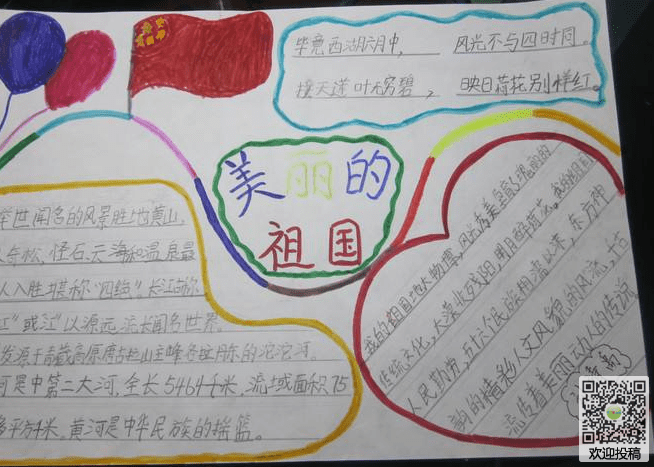 毕竟西湖六月中, 风光不与四时同.
接天莲叶无穷碧, 映日荷花别样红.
美丽的
祖国
举世闻名的风景胜地黄山,
奇松、怪石、云海和温泉最
人入胜,堪称"四绝".长江称
江"或"江"以源远流长闻名世界.
发源于青藏高原唐古拉山主峰各拉丹东的沱沱河.
河是中第二大河.全长5464千米,流域面积75
多平方千米.黄河是中华民族的摇篮.
我的祖国地大物博,风光秀美,
传统文化,大漠收残阳,明月醉荷花,
人民勤劳,五十六个民族相濡以沫,东方神
韵的精彩人文风貌的风流,
流传着美丽动人的传说
欢迎投稿